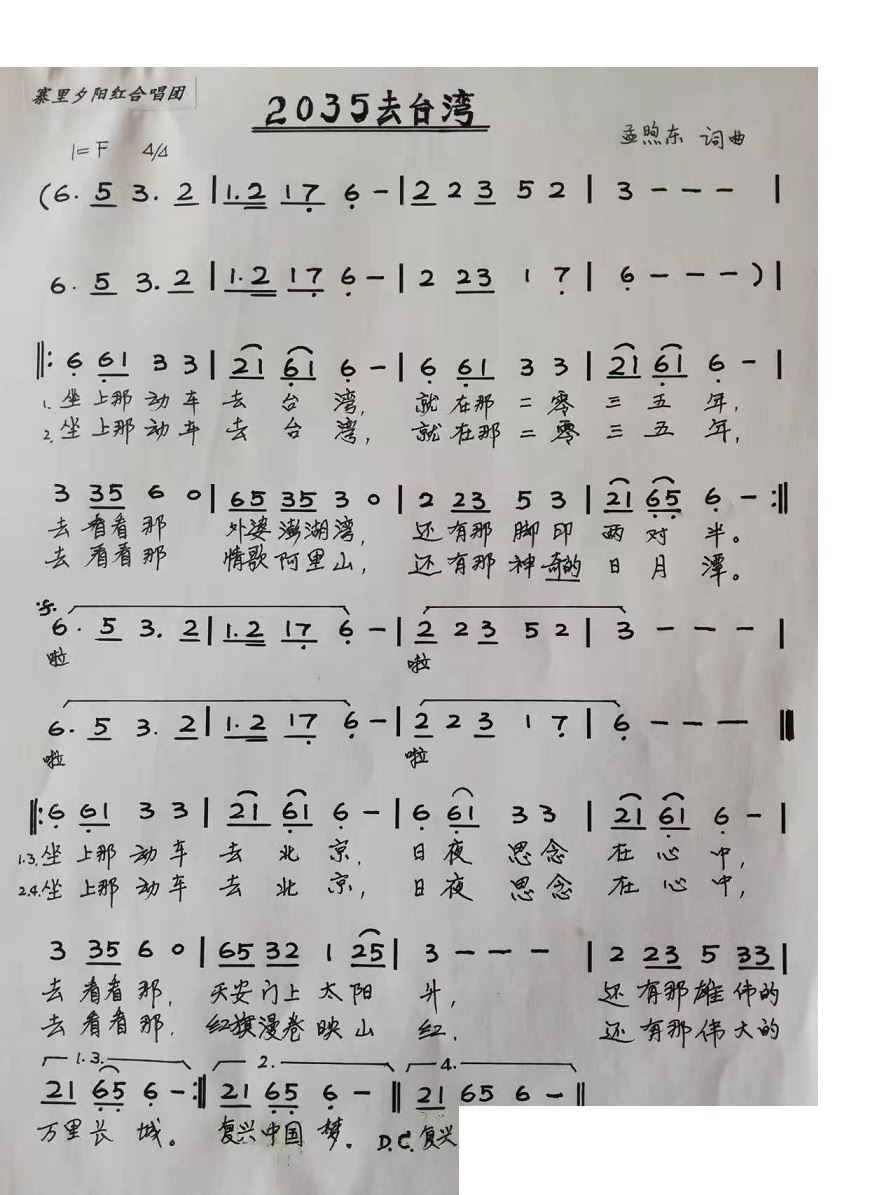 寨里夕阳红合唱团
2035去台湾
1=F 4/4
孟煦东 词曲
(6. 5 3. 2 | 1.2 17 6 - | 2 2 3 5 2 | 3 - - - |
6. 5 3. 2 | 1.2 17 6 - | 2 23 1 7 | 6 - - - ) |
‖: 6 61 3 3 | 21 61 6 - | 6 61 3 3 | 21 61 6 - |
1. 坐上那动车去台湾, 就在那二零三五年,
2. 坐上那动车去台湾, 就在那二零三五年,
3 35 6 0 | 65 35 3 0 | 2 23 5 3 | 21 65 6 - :‖
去看看那 外婆澎湖湾, 还有那脚印两对半。
去看看那 情歌阿里山, 还有那神奇的日月潭。
6. 5 3. 2 | 1.2 17 6 - | 2 2 3 5 2 | 3 - - - |
啦 啦
6. 5 3. 2 | 1.2 17 6 - | 2 2 3 1 7 | 6 - - - ‖
啦 啦
‖: 6 61 3 3 | 21 61 6 - | 6 61 3 3 | 21 61 6 - |
1.3. 坐上那动车去北京, 日夜思念在心中,
2.4. 坐上那动车去北京, 日夜思念在心中,
3 35 6 0 | 65 32 1 25 | 3 - - - | 2 23 5 33 |
去看看那, 天安门上太阳升, 还有那雄伟的
去看看那, 红旗漫卷映山红. 还有那伟大的
1.3. 2. 4.
21 65 6 - :‖ 21 65 6 - ‖ 21 65 6 - ‖
万里长城。 复兴中国梦。 D.C. 复兴